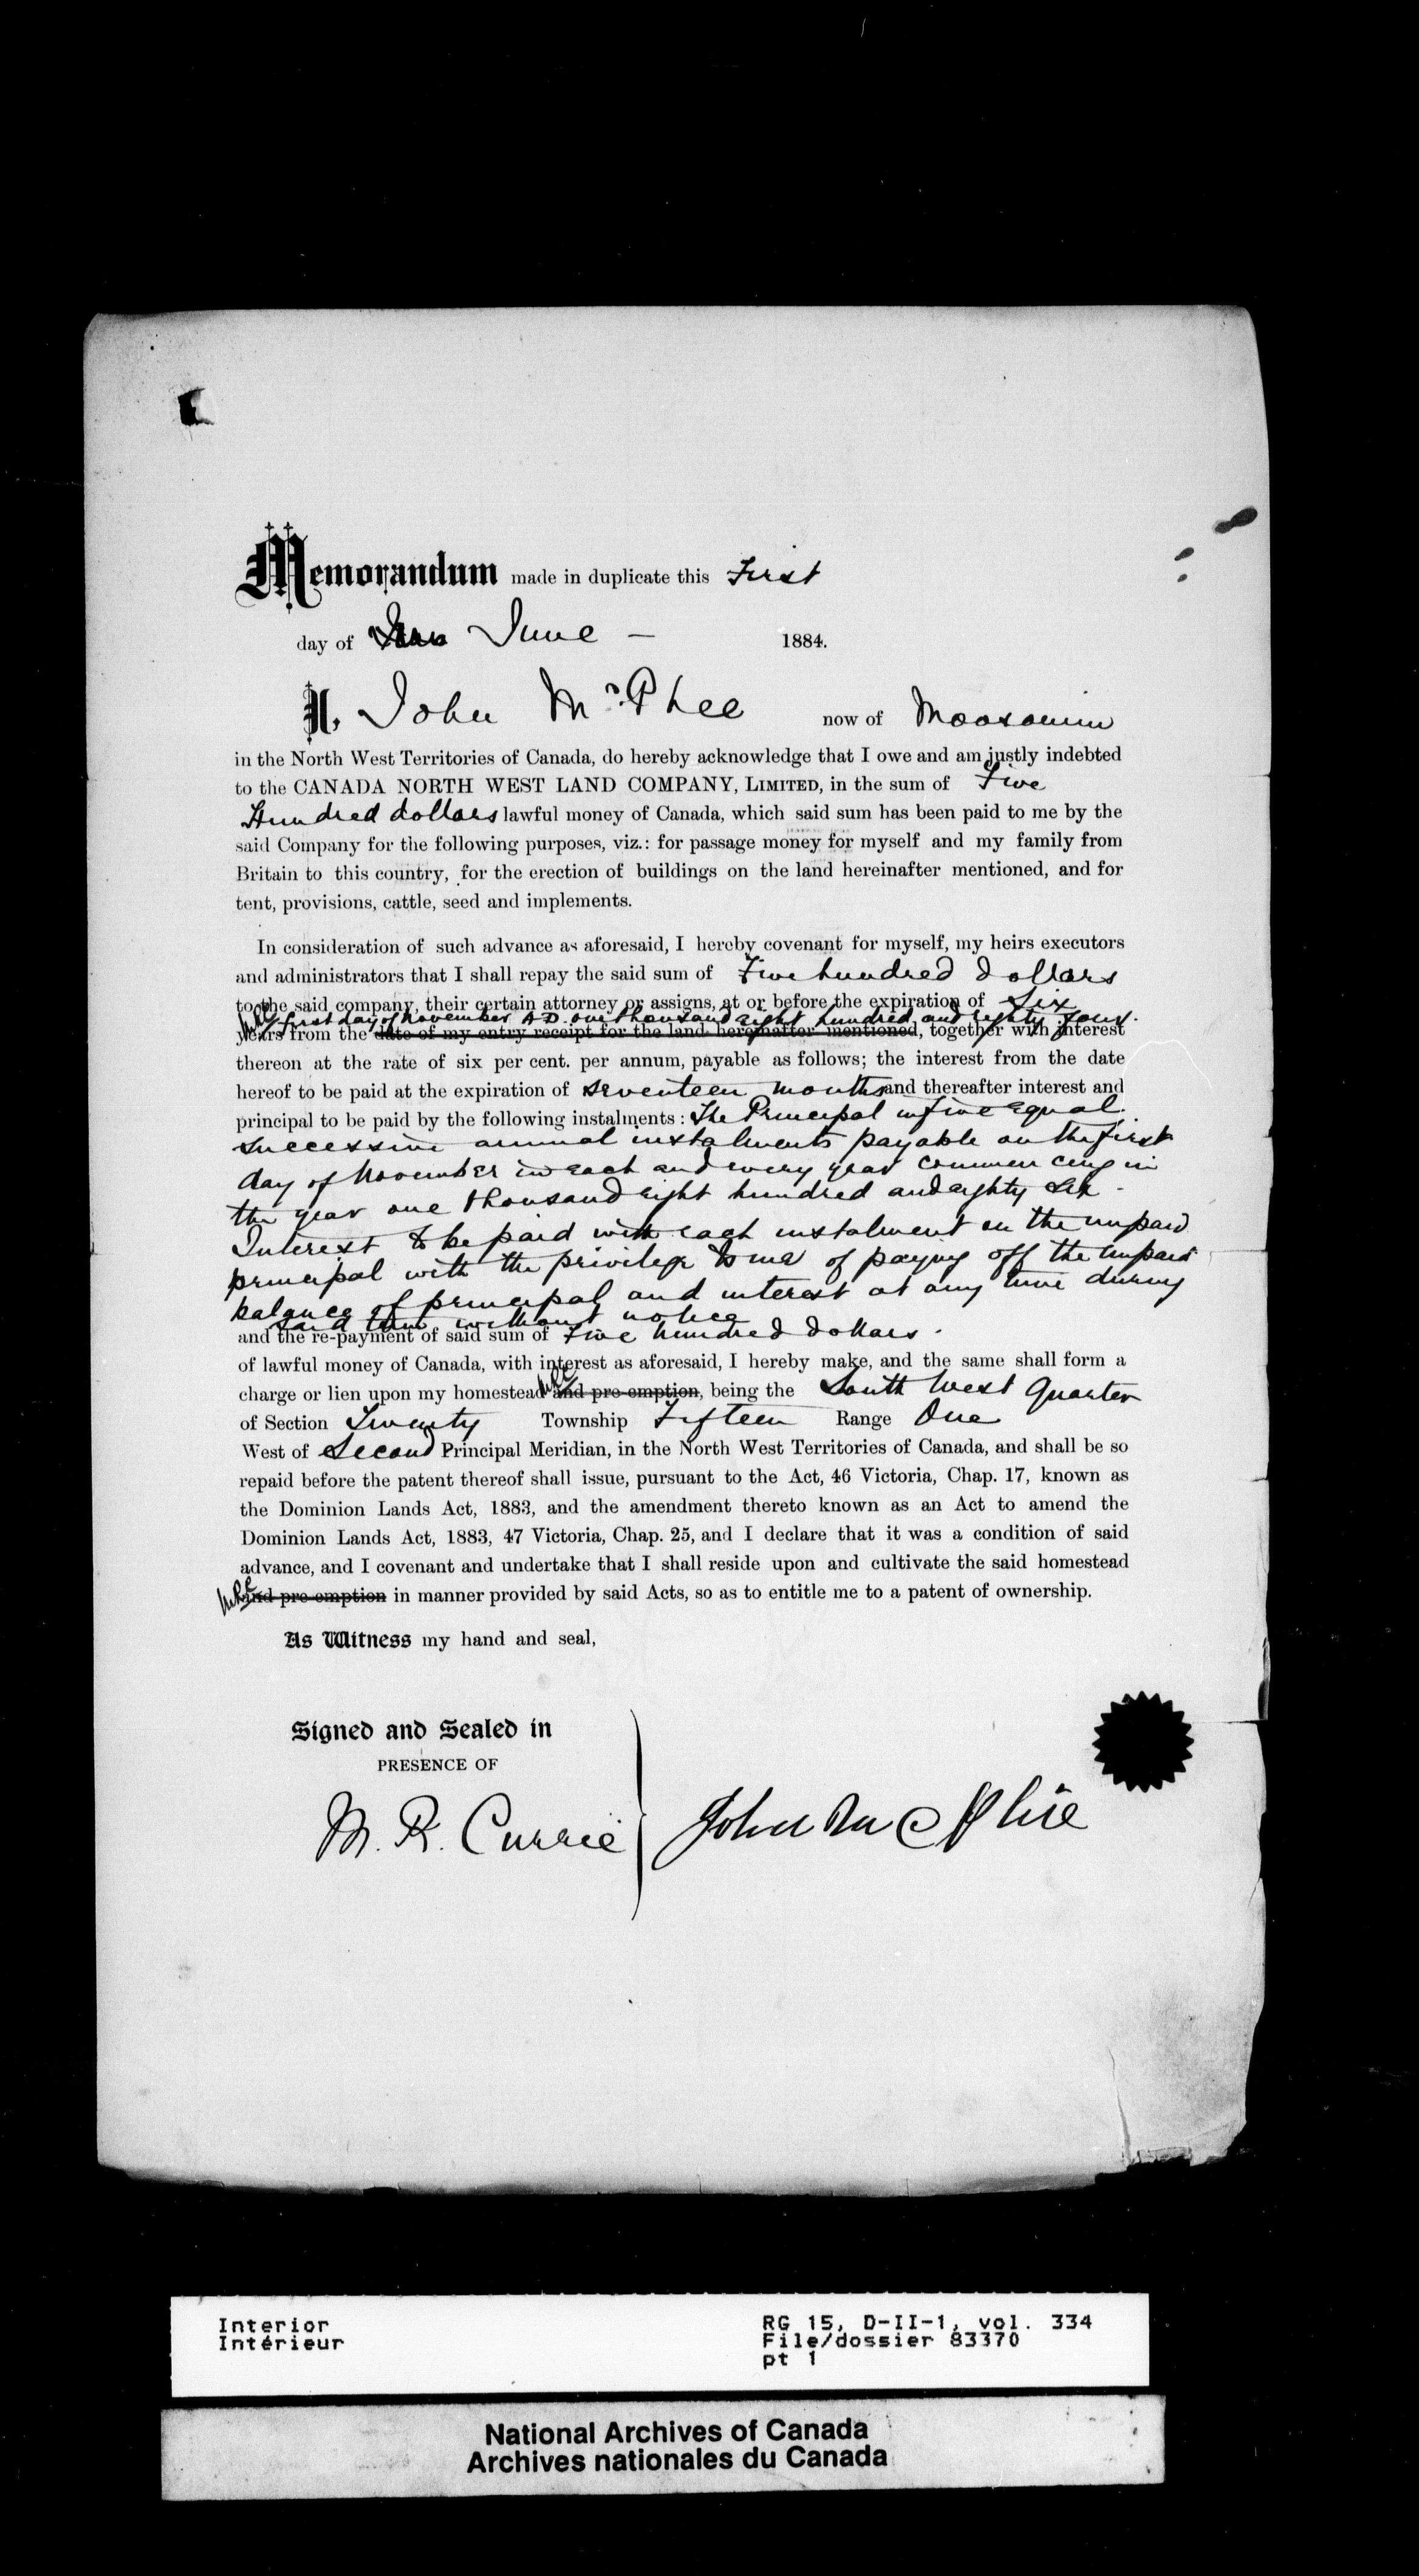 Memorandum made in duplicate this First
day of June — 1884.
I, John McPhee now of Moosomin
in the North West Territories of Canada, do hereby acknowledge that I owe and am justly indebted
to the CANADA NORTH WEST LAND COMPANY, LIMITED, in the sum of Five
Hundred dollars lawful money of Canada, which said sum has been paid to me by the
said Company for the following purposes, viz.: for passage money for myself and my family from
Britain to this country, for the erection of buildings on the land hereinafter mentioned, and for
tent, provisions, cattle, seed and implements.
In consideration of such advance as aforesaid, I hereby covenant for myself, my heirs executors
and administrators that I shall repay the said sum of Five hundred dollars
to the said company, their certain attorney or assigns, at or before the expiration of Six
first day of November A.D. one thousand eight hundred and eighty four.
years from the date of my entry receipt for the land hereinafter mentioned, together with interest
thereon at the rate of six per cent. per annum, payable as follows; the interest from the date
hereof to be paid at the expiration of seventeen months and thereafter interest and
principal to be paid by the following instalments: The Principal in five equal
successive annual instalments payable on the first
day of November in each and every year commencing in
the year one thousand eight hundred and eighty six.
Interest to be paid with each instalment on the unpaid
principal with the privilege to me of paying off the unpaid
balance of principal and interest at any time during
said term without notice
and the re-payment of said sum of Five hundred dollars.
of lawful money of Canada, with interest as aforesaid, I hereby make, and the same shall form a
charge or lien upon my homestead MRC and pre-emption, being the South West Quarter
of Section Twenty Township Fifteen Range One
West of Second Principal Meridian, in the North West Territories of Canada, and shall be so
repaid before the patent thereof shall issue, pursuant to the Act, 46 Victoria, Chap. 17, known as
the Dominion Lands Act, 1883, and the amendment thereto known as an Act to amend the
Dominion Lands Act, 1883, 47 Victoria, Chap. 25, and I declare that it was a condition of said
advance, and I covenant and undertake that I shall reside upon and cultivate the said homestead
MRC and pre-emption in manner provided by said Acts, so as to entitle me to a patent of ownership.
As Witness my hand and seal,
Signed and Sealed in
PRESENCE OF
M. R. Currie John McPhie
Interior RG 15, D-II-1, vol. 334
Intérieur File/dossier 83370
pt 1
National Archives of Canada
Archives nationales du Canada